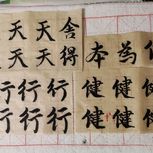 天天舍
天天得
行行行
行行行
本為
健健健
健健健